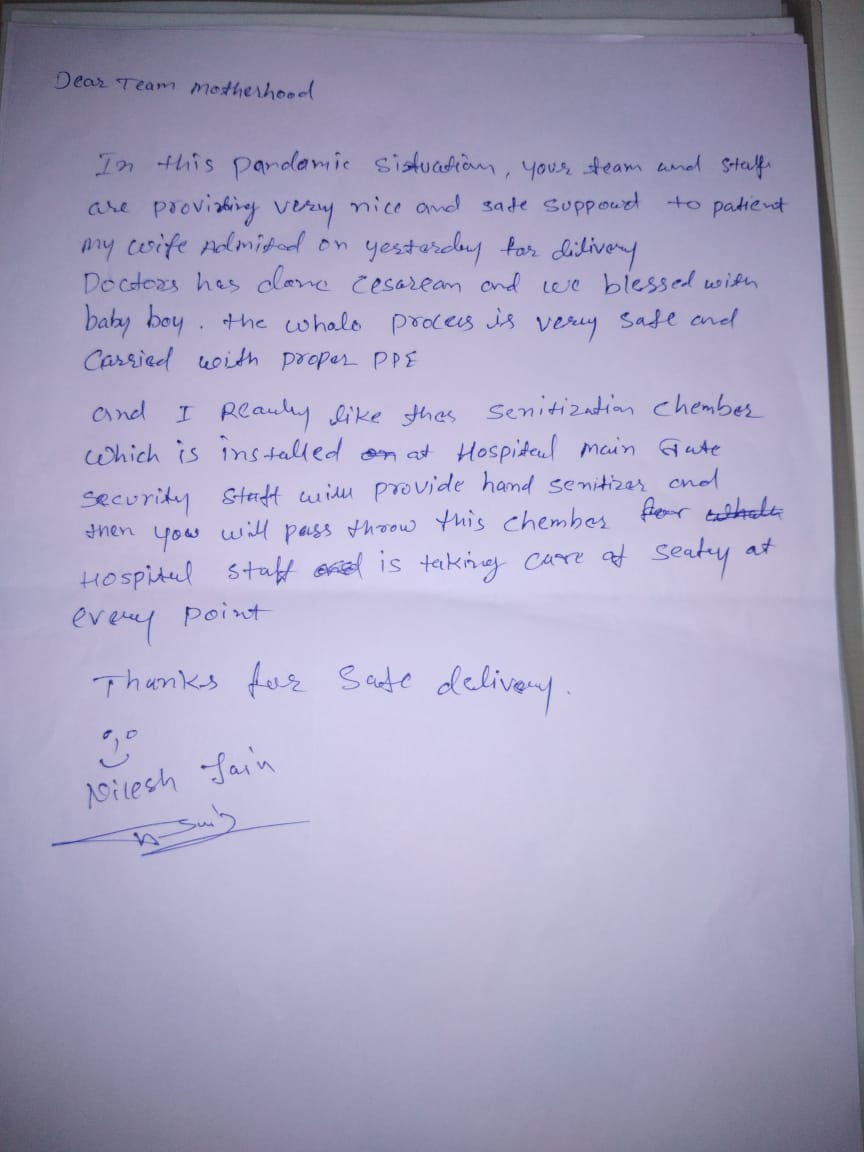 Dear Team Motherhood
In this pandamic sistuation, your team and staff
are providing very nice and safe suppourt to patient
my wife Admited on yestarday for dilivery
Doctors has done cesarean and we blessed with
baby boy. the whole process is very safe and
Carried with proper PPE
and I Reauly like thes senitization chember
which is installed on at Hospital main Gate
security staff will provide hand senitizer and
then you will pass throw this chember for whole
Hospital staff and is taking care of seafty at
every point
Thanks for Safe delivery.
Nilesh Jain